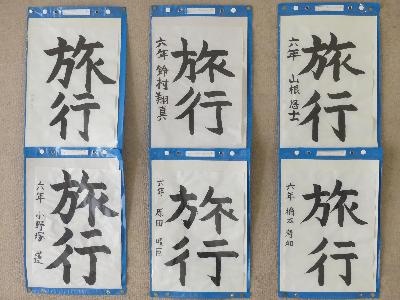 旅行
旅行
六年 鈴村翔真
旅行
六年 山根
旅行
六年 小野塚
旅行
六年 原田
旅行
六年 橋本